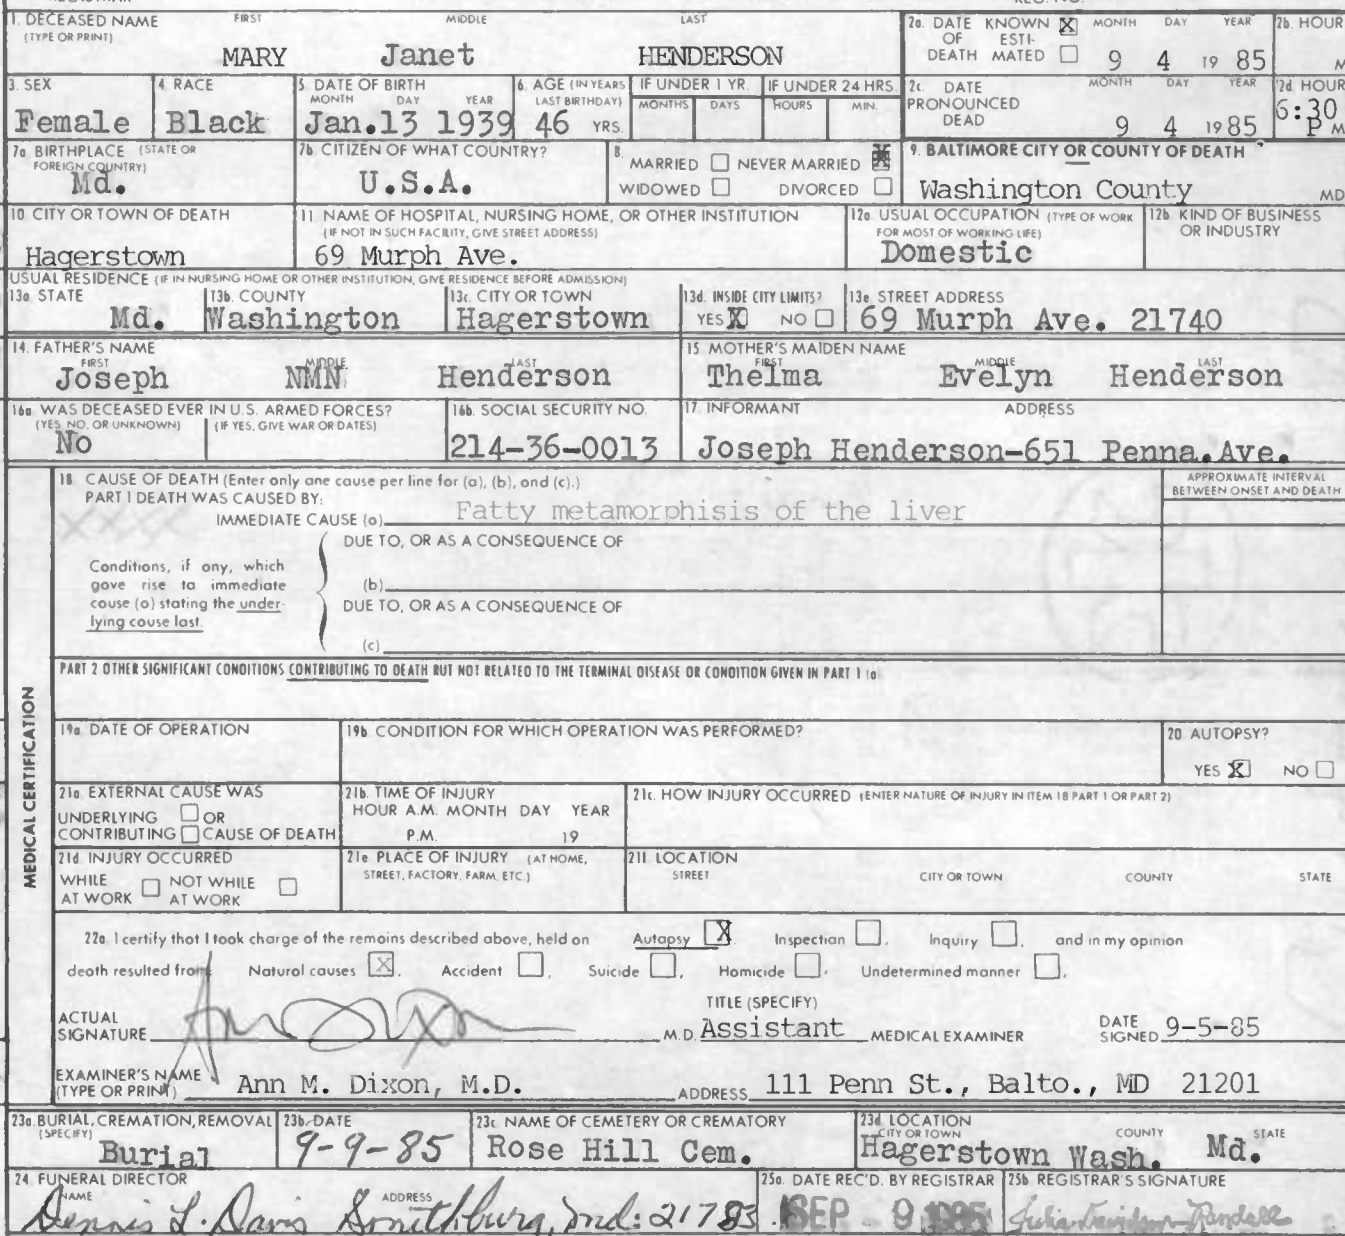 1. DECEASED NAME (TYPE OR PRINT) FIRST MIDDLE LAST
MARY Janet HENDERSON
2a. DATE OF DEATH KNOWN X ESTIMATED MONTH DAY YEAR 9 4 19 85
2b. HOUR M
3. SEX Female
4. RACE Black
5. DATE OF BIRTH MONTH DAY YEAR Jan.13 1939
6. AGE (IN YEARS LAST BIRTHDAY) 46 YRS.
IF UNDER 1 YR. MONTHS DAYS
IF UNDER 24 HRS. HOURS MIN.
2c. DATE PRONOUNCED DEAD MONTH DAY YEAR 9 4 1985
2d HOUR 6:30 P M
7a BIRTHPLACE (STATE OR FOREIGN COUNTRY) Md.
7b. CITIZEN OF WHAT COUNTRY? U.S.A.
8. MARRIED NEVER MARRIED X
WIDOWED DIVORCED
9. BALTIMORE CITY OR COUNTY OF DEATH
Washington County MD
10 CITY OR TOWN OF DEATH Hagerstown
11 NAME OF HOSPITAL, NURSING HOME, OR OTHER INSTITUTION
(IF NOT IN SUCH FACILITY, GIVE STREET ADDRESS)
69 Murph Ave.
12a USUAL OCCUPATION (TYPE OF WORK FOR MOST OF WORKING LIFE)
Domestic
12b. KIND OF BUSINESS OR INDUSTRY
USUAL RESIDENCE (IF IN NURSING HOME OR OTHER INSTITUTION, GIVE RESIDENCE BEFORE ADMISSION)
13a STATE Md.
13b. COUNTY Washington
13c. CITY OR TOWN Hagerstown
13d. INSIDE CITY LIMITS? YES X NO
13e STREET ADDRESS 69 Murph Ave. 21740
14. FATHER'S NAME FIRST MIDDLE LAST
Joseph NMN Henderson
15 MOTHER'S MAIDEN NAME FIRST MIDDLE LAST
Thelma Evelyn Henderson
16a WAS DECEASED EVER IN U.S. ARMED FORCES?
(YES, NO, OR UNKNOWN) (IF YES, GIVE WAR OR DATES)
No
16b. SOCIAL SECURITY NO. 214-36-0013
17 INFORMANT ADDRESS
Joseph Henderson-651 Penna.Ave.
18 CAUSE OF DEATH (Enter only one cause per line for (a), (b), and (c).)
APPROXIMATE INTERVAL BETWEEN ONSET AND DEATH
PART I DEATH WAS CAUSED BY:
XXXX
IMMEDIATE CAUSE (a) Fatty metamorphisis of the liver
DUE TO, OR AS A CONSEQUENCE OF
Conditions, if any, which
gave rise to immediate
cause (a) stating the under-
lying cause last.
(b)
DUE TO, OR AS A CONSEQUENCE OF
(c)
PART 2 OTHER SIGNIFICANT CONDITIONS CONTRIBUTING TO DEATH BUT NOT RELATED TO THE TERMINAL DISEASE OR CONDITION GIVEN IN PART 1 (a)
MEDICAL CERTIFICATION
19a DATE OF OPERATION
19b CONDITION FOR WHICH OPERATION WAS PERFORMED?
20 AUTOPSY? YES X NO
21a EXTERNAL CAUSE WAS
UNDERLYING OR
CONTRIBUTING CAUSE OF DEATH
21b. TIME OF INJURY
HOUR A.M. MONTH DAY YEAR
P.M. 19
21c. HOW INJURY OCCURRED (ENTER NATURE OF INJURY IN ITEM 18 PART 1 OR PART 2)
21d INJURY OCCURRED
WHILE AT WORK NOT WHILE AT WORK
21e PLACE OF INJURY (AT HOME, STREET, FACTORY, FARM, ETC.)
21f. LOCATION STREET CITY OR TOWN COUNTY STATE
22a I certify that I took charge of the remains described above, held on Autopsy X. Inspection , Inquiry , and in my opinion
death resulted from Natural causes X. Accident , Suicide , Homicide . Undetermined manner .
ACTUAL SIGNATURE
TITLE (SPECIFY)
M.D. Assistant MEDICAL EXAMINER
DATE SIGNED 9-5-85
EXAMINER'S NAME (TYPE OR PRINT) Ann M. Dixon, M.D.
ADDRESS 111 Penn St., Balto., MD 21201
23a. BURIAL, CREMATION, REMOVAL (SPECIFY) Burial
23b. DATE 9-9-85
23c NAME OF CEMETERY OR CREMATORY Rose Hill Cem.
23d LOCATION CITY OR TOWN COUNTY STATE
Hagerstown Wash. Md.
24 FUNERAL DIRECTOR NAME ADDRESS
Dennis L. Davis Smithburg, Md. 21783
25a. DATE REC'D. BY REGISTRAR SEP 9 1985
25b REGISTRAR'S SIGNATURE
Julia Davidson-Randall